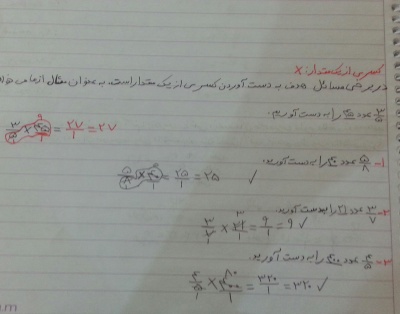 کسری از یک مقدار: X
در برخی مسائل هدف به دست آوردن کسری از یک مقدار است. به عنوان مثال از ما می‌خوا
۳/۵ عدد ۴۵ را به دست آوریم.
۳/۵ × ۴۵/۱ = ۲۷/۱ = ۲۷
۱- ۵/۸ عدد ۴۰ را به دست آورید.
۵/۸ × ۴۰/۱ = ۲۵/۱ = ۲۵ ✓
۲- ۳/۷ عدد ۲۱ را به دست آورید.
۳/۷ × ۲۱/۱ = ۹/۱ = ۹ ✓
۳- ۴/۵ عدد ۴۰۰ را به دست آورید.
۴/۵ × ۴۰۰/۱ = ۳۲۰/۱ = ۳۲۰ ✓